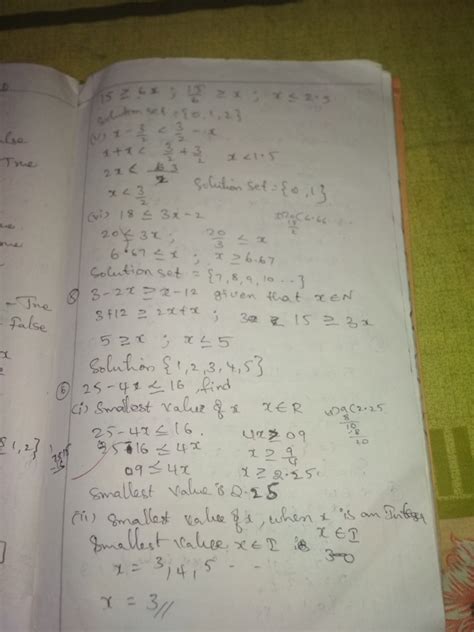 15 ≥ 6x ; 15/6 ≥ x ; x ≤ 2.5
Solution set = {0,1,2}
(v) x - 3/2 < 3/2 - x
x + x < 3/2 + 3/2
x < 1.5
2x < 3
x < 3/2
Solution set = {0,1}
(vi) 18 ≤ 3x - 2
20 ≤ 3x ; 20/3 ≤ x
6.67 ≤ x ; x ≥ 6.67
Solution set = {7,8,9,10 ...}
5 3 - 2x ≥ x - 12 given that x∈N
3 + 12 ≥ 2x + x ; 15 ≥ 3x
5 ≥ x ; x ≤ 5
Solution {1,2,3,4,5}
6 25 - 4x ≤ 16, find
(i) Smallest value of x x∈R
25 - 4x ≤ 16
4x ≥ 09
25 - 16 ≤ 4x
x ≥ 9/4
09 ≤ 4x
x ≥ 2.25
Smallest value is 2.25
(ii) Smallest value of x, when x is an Integer
x∈I
Smallest value, x∈I is
x = 3, 4, 5 - -
x = 3//
alse
True
- True
- False
1,2}